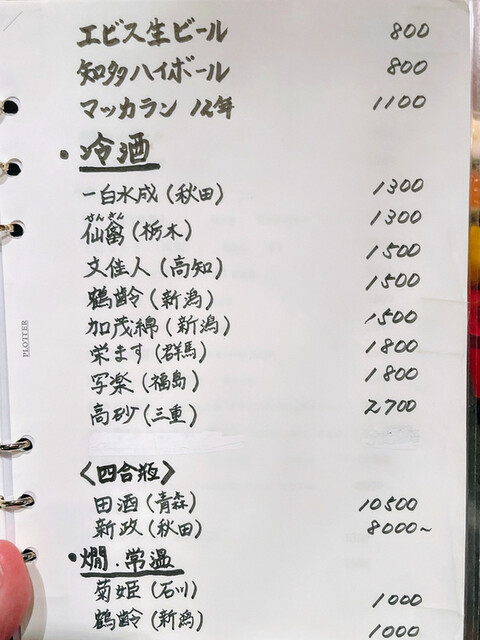 エビス生ビール 800
知多ハイボール 800
マッカラン 12年 1100
・冷酒
一白水成(秋田) 1300
さんきん
仙禽(栃木) 1300
文佳人(高知) 1500
鶴齢(新潟) 1500
加茂錦(新潟) 1500
栄ます(群馬) 1800
写楽(福島) 1800
高砂(三重) 2700
〈四合瓶〉
田酒(青森) 10500
新政(秋田) 8000~
・燗.常温
菊姫(石川) 1000
鶴齢(新潟) 1000
PLOTTER